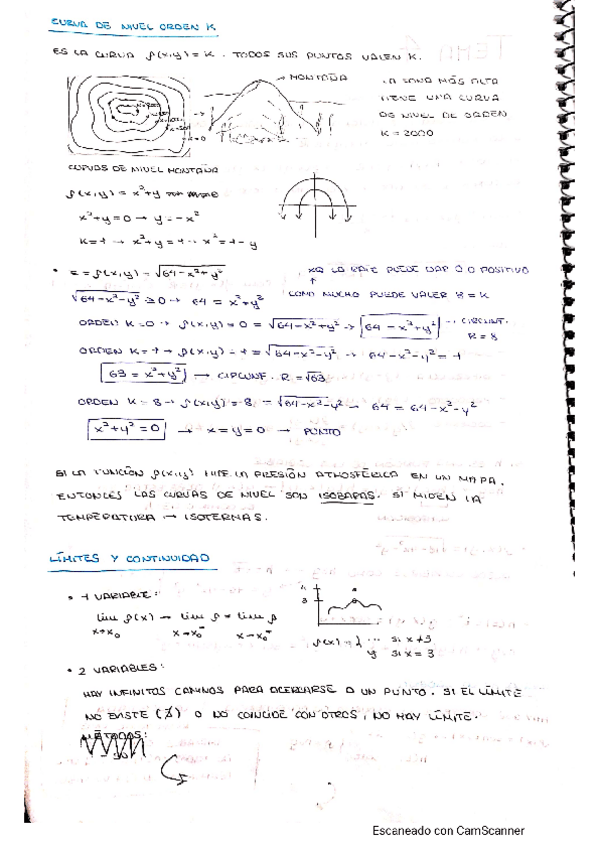 CURVA DE NIVEL ORDEN K
ES LA CURVA f(x,y) = K. TODOS SUS PUNTOS VALEN K.
→ MONTAÑA
LA ZONA MÁS ALTA
TIENE UNA CURVA
DE NIVEL DE ORDEN
K = 2000
CURVAS DE NIVEL MONTAÑA
f(x,y) = x²+y
x²+y=0 → y=-x²
K=1 → x²+y=1 → x²=1-y
• z = f(x,y) = √64-x²+y²
XQ LA RAIZ PUEDE DAR 0 O POSITIVO
↑
√64-x²-y² ≥0 → 64 = x²+y²
COMO MUCHO PUEDE VALER 8 = K
ORDEN K=0 → f(x,y) = 0 = √64-x²+y² → 64 - x²+y² → CIRCUNF.
R=8
ORDEN K=1 → f(x,y) = 1 = √64-x²-y² → 64-x²-y² = 1
63 = x²+y² → CIRCUNF. R=√63
ORDEN K=8 → f(x,y) = 8 = √64-x²-y² → 64 = 64-x²-y²
x²+y²=0 → x=y=0 → PUNTO
SI LA FUNCIÓN f(x,y) MIDE LA PRESIÓN ATMOSFÉRICA EN UN MAPA,
ENTONCES LAS CURVAS DE NIVEL SON ISOBARAS. SI MIDEN LA
TEMPERATURA → ISOTERMAS.
LÍMITES Y CONTINUIDAD
• 1 VARIABLE:
lim f(x) → lim f = lim f
x→x₀ x→x₀⁻ x→x₀⁻
f(x) = { ... si x≠3
y si x = 3
• 2 VARIABLES:
HAY INFINITOS CAMINOS PARA ACERCARSE A UN PUNTO. SI EL LÍMITE
NO EXISTE (∄) O NO COINCIDE CON OTROS, NO HAY LÍMITE.
MÉTODOS:
Escaneado con CamScanner